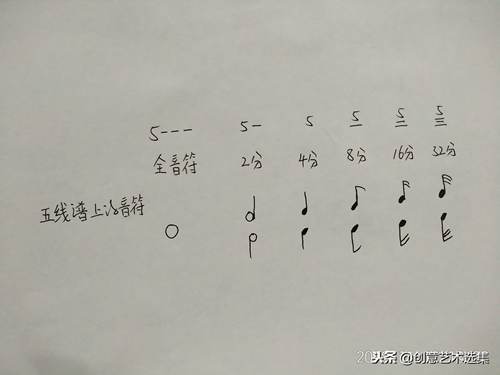 5--- 5- 5 5 5 5
全音符 2分 4分 8分 16分 32分
五线谱上的音符
头条 @创意艺术选集